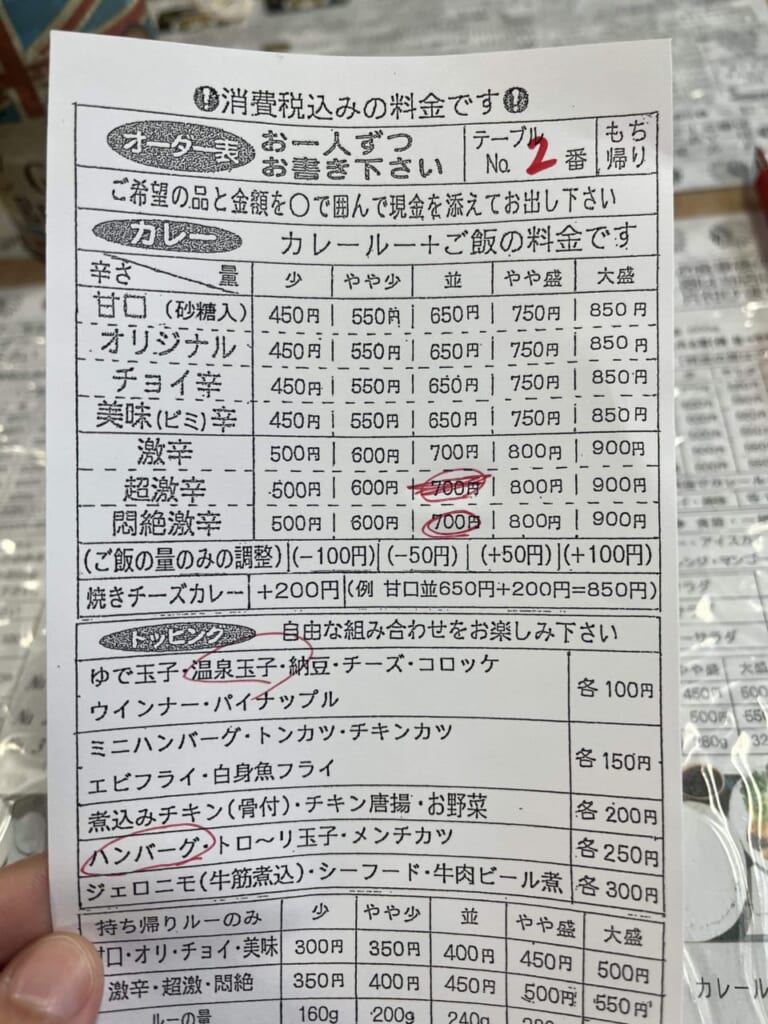 消費税込みの料金です
オーダー表 お一人ずつ お書き下さい テーブル No. 2 番 もち帰り
ご希望の品と金額を〇で囲んで現金を添えてお出し下さい
カレー カレールー+ご飯の料金です
辛さ 量 少 やや少 並 やや盛 大盛
甘口(砂糖入) 450円 550円 650円 750円 850円
オリジナル 450円 550円 650円 750円 850円
チョイ辛 450円 550円 650円 750円 850円
美味(ビミ)辛 450円 550円 650円 750円 850円
激辛 500円 600円 700円 800円 900円
超激辛 500円 600円 700円 800円 900円
悶絶激辛 500円 600円 700円 800円 900円
(ご飯の量のみの調整) (-100円) (-50円) (+50円) (+100円)
焼きチーズカレー +200円 (例 甘口並650円+200円=850円)
トッピング 自由な組み合わせをお楽しみ下さい
ゆで玉子・温泉玉子・納豆・チーズ・コロッケ
ウインナー・パイナップル 各100円
ミニハンバーグ・トンカツ・チキンカツ
エビフライ・白身魚フライ 各150円
煮込みチキン(骨付)・チキン唐揚・お野菜 各200円
ハンバーグ・トロ〜リ玉子・メンチカツ 各250円
ジェロニモ(牛筋煮込)・シーフード・牛肉ビール煮 各300円
持ち帰りルーのみ 少 やや少 並 やや盛 大盛
甘口・オリ・チョイ・美味 300円 350円 400円 450円 500円
激辛・超激・悶絶 350円 400円 450円 500円 550円
ルーの量 160g 200g 240g 280g
サラダ
やや盛 大盛
カレール